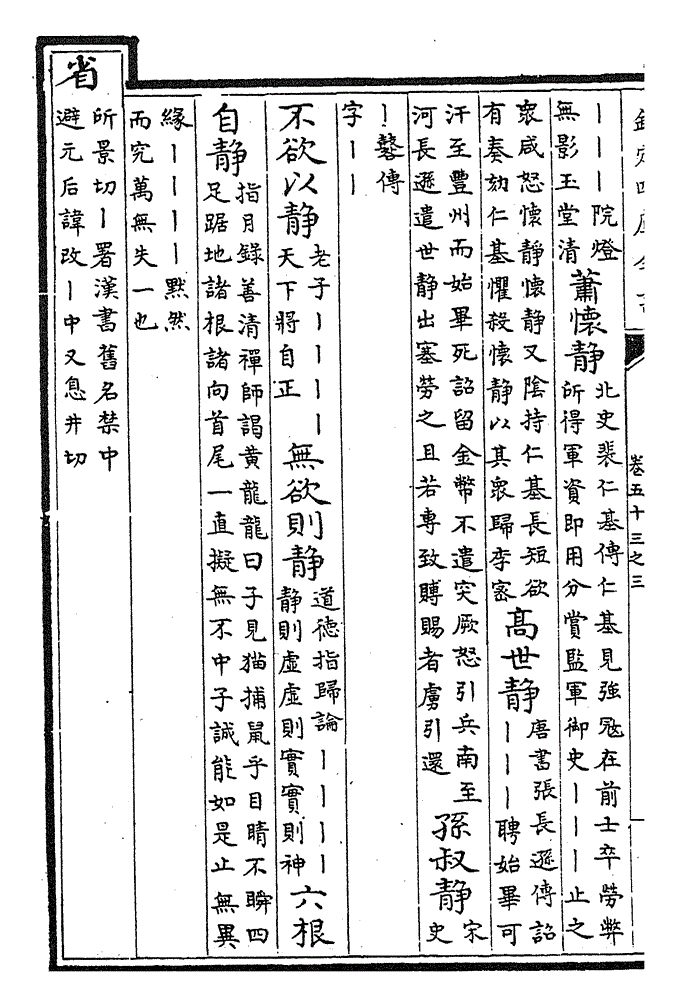 欽定四庫全書
卷五十三之三
｜｜｜院燈
無影玉堂清
蕭懷静
北史裴仁基傳仁基見強冦在前士卒勞弊
所得軍資即用分賞監軍御史｜｜｜止之
衆咸怒懷静懷静又陰持仁基長短欲
有奏劾仁基懼殺懷静以其衆歸李密
高世静
唐書張長遜傳詔
｜｜｜聘始畢可
汗至豐州而始畢死詔留金幣不遣突厥怒引兵南至
河長遜遣世静出塞勞之且若專致賻賜者虜引還
孫叔静
宋
史
｜鼛傳
字｜｜
不欲以静
老子｜｜｜｜
天下將自正
無欲則静
道德指歸論｜｜｜｜
静則虛虛則實實則神
六根
自静
指月録善清禪師謁黄龍龍曰子見猫捕鼠乎目睛不瞬四
足踞地諸根諸向首尾一直擬無不中子誠能如是止無異
緣｜｜｜｜默然
而究萬無失一也
省
所景切｜署漢書舊名禁中
避元后諱改｜中又息井切